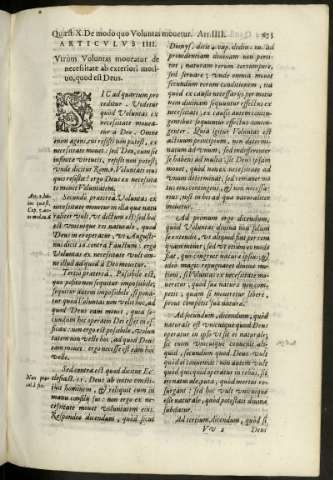 Quæst. X. De modo quo Voluntas mouetur. Art. IIII.
ARTICVLVS IIII.
Vtrùm Voluntas moueatur de
necessitate ab exteriori moti-
uo, quod est Deus.
SIC ad quartum pro
ceditur. Videtur
quòd Voluntas ex
necessitate mouea-
tur à Deo. Omne
enim agens, cui resisti non potest, ex
necessitate mouet: sed Deo, cum sit
infinitæ virtutis, resisti non potest;
vnde dicitur Rom. 9. Voluntati eius
quis resistit? ergo Deus ex necessita-
te mouet Voluntatem.
Secundò prætereà, Voluntas ex
necessitate mouetur in illa quæ natu
raliter vult, vt dictum est: sed hoc
est vnicuique rei naturale, quod
Deus in ea operatur, vt Augusti-
nus dicit contra Faustum: ergo
Voluntas ex necessitate vult om-
ne illud ad quod à Deo mouetur.
Tertiò prætereà. Possibile est,
quo posito non sequitur impossibile;
sequitur autem impossibile, si pona-
tur quòd Voluntas non velit hoc, ad
quod Deus eam mouet, quia se-
cundum hoc operatio Dei esset in ef-
ficax: non ergo est possibile, Volun-
tatem non velle hoc, ad quod Deus
eam mouet: ergo necesse est eam hoc
velle.
Sed contra est quod dicitur Ec-
clesiast. 15. Deus ab initio consti-
tuit hominem, & reliquit eum in
manu consilij sui: non ergo ex ne-
cessitate mouet voluntatem eius.
Respondeo dicendum, quòd sicut
Dionys. dicit 4. cap. de diui. no. ad
prouidentiam diuinam non perti-
net, naturam rerum corrumpere,
sed seruare; vnde omnia mouet
secundum eorum conditionem, ita
quòd ex causis necessarijs per motio
nem diuinam sequuntur effectus ex
necessitate, ex causis autem contin-
gentibus sequuntur effectus contin-
genter. Quia igitur Voluntas est
actiuum principium, non determi-
natum ad vnum, sed indifferenter
se habens ad multa, sic Deus ipsam
mouet, quòd non ex necessitate ad
vnum determinat, sed remanet mo-
tus eius contingens, & non necessa-
rius, nisi in his ad quæ naturaliter
mouetur.
Ad primum ergo dicendum,
quòd Voluntas diuina non solùm
se extendit, vt aliquid fiat per rem
quam mouet, sed vt etiam eo modo
fiat, quo congruit naturæ ipsius; &
ideo magis repugnaret diuinæ mo-
tioni, si Voluntas ex necessitate mo-
ueretur, quod suæ naturæ non com-
petit, quàm si moueretur liberè,
prout competit suæ naturæ.
Ad secundum, dicendum, quòd
naturale est vnicuique quod Deus
operatur in ipso vt sit ei naturale;
sic enim vnicuique conuenit ali-
quid, secundum quod Deus vult
quod ei conueniat, non autem vult
quòd quicquid operatur in rebus, sit
eis naturale, puta, quòd mortui re-
surgant: sed hoc vult vnicuique
esse naturale, quòd potestati diuinæ
subdatur.
Ad tertium, dicendum, quòd si
Vvv 2 Deus